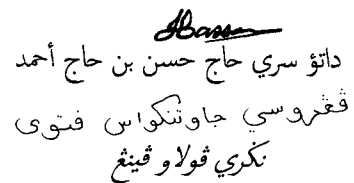 Hassan
داتؤ سري حاج حسن بن حاج أحمد
ڤڠروسي جاوتنكواس فتوى
نكري ڤولاو ڤينڠ